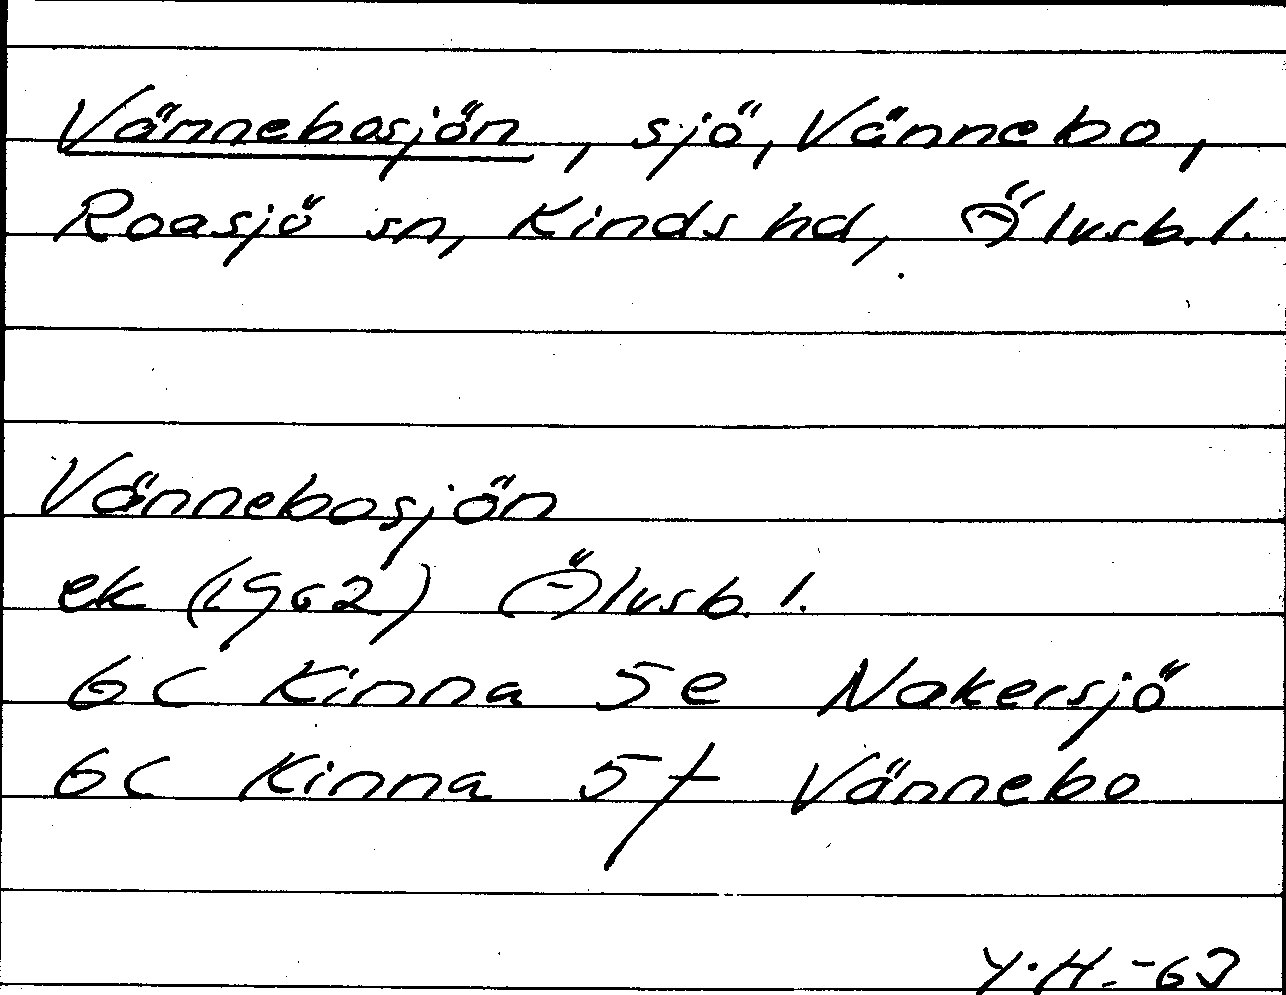 Vännebosjön, sjö, Vännebo,
Roasjö sn, Kinds hd, Älvsb. l.
Vännebosjön
ek (1962) Älvsb. l.
6C Kinna 5e Nakersjö
6C Kinna 5f Vännebo
Y.H.-63